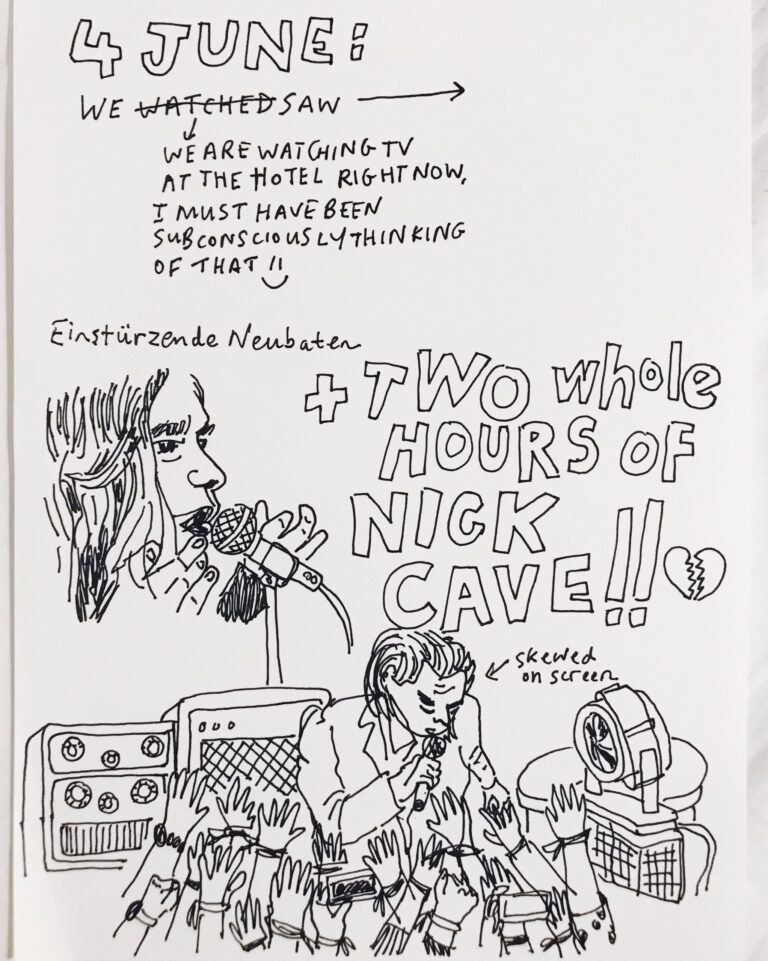 4 JUNE:
WE WATCHED SAW
WE ARE WATCHING TV
AT THE HOTEL RIGHT NOW,
I MUST HAVE BEEN
SUBCONSCIOUSLY THINKING
OF THAT !!
Einstürzende Neubaten
+ TWO whole
HOURS OF
NICK
CAVE!!
skewed
on screen